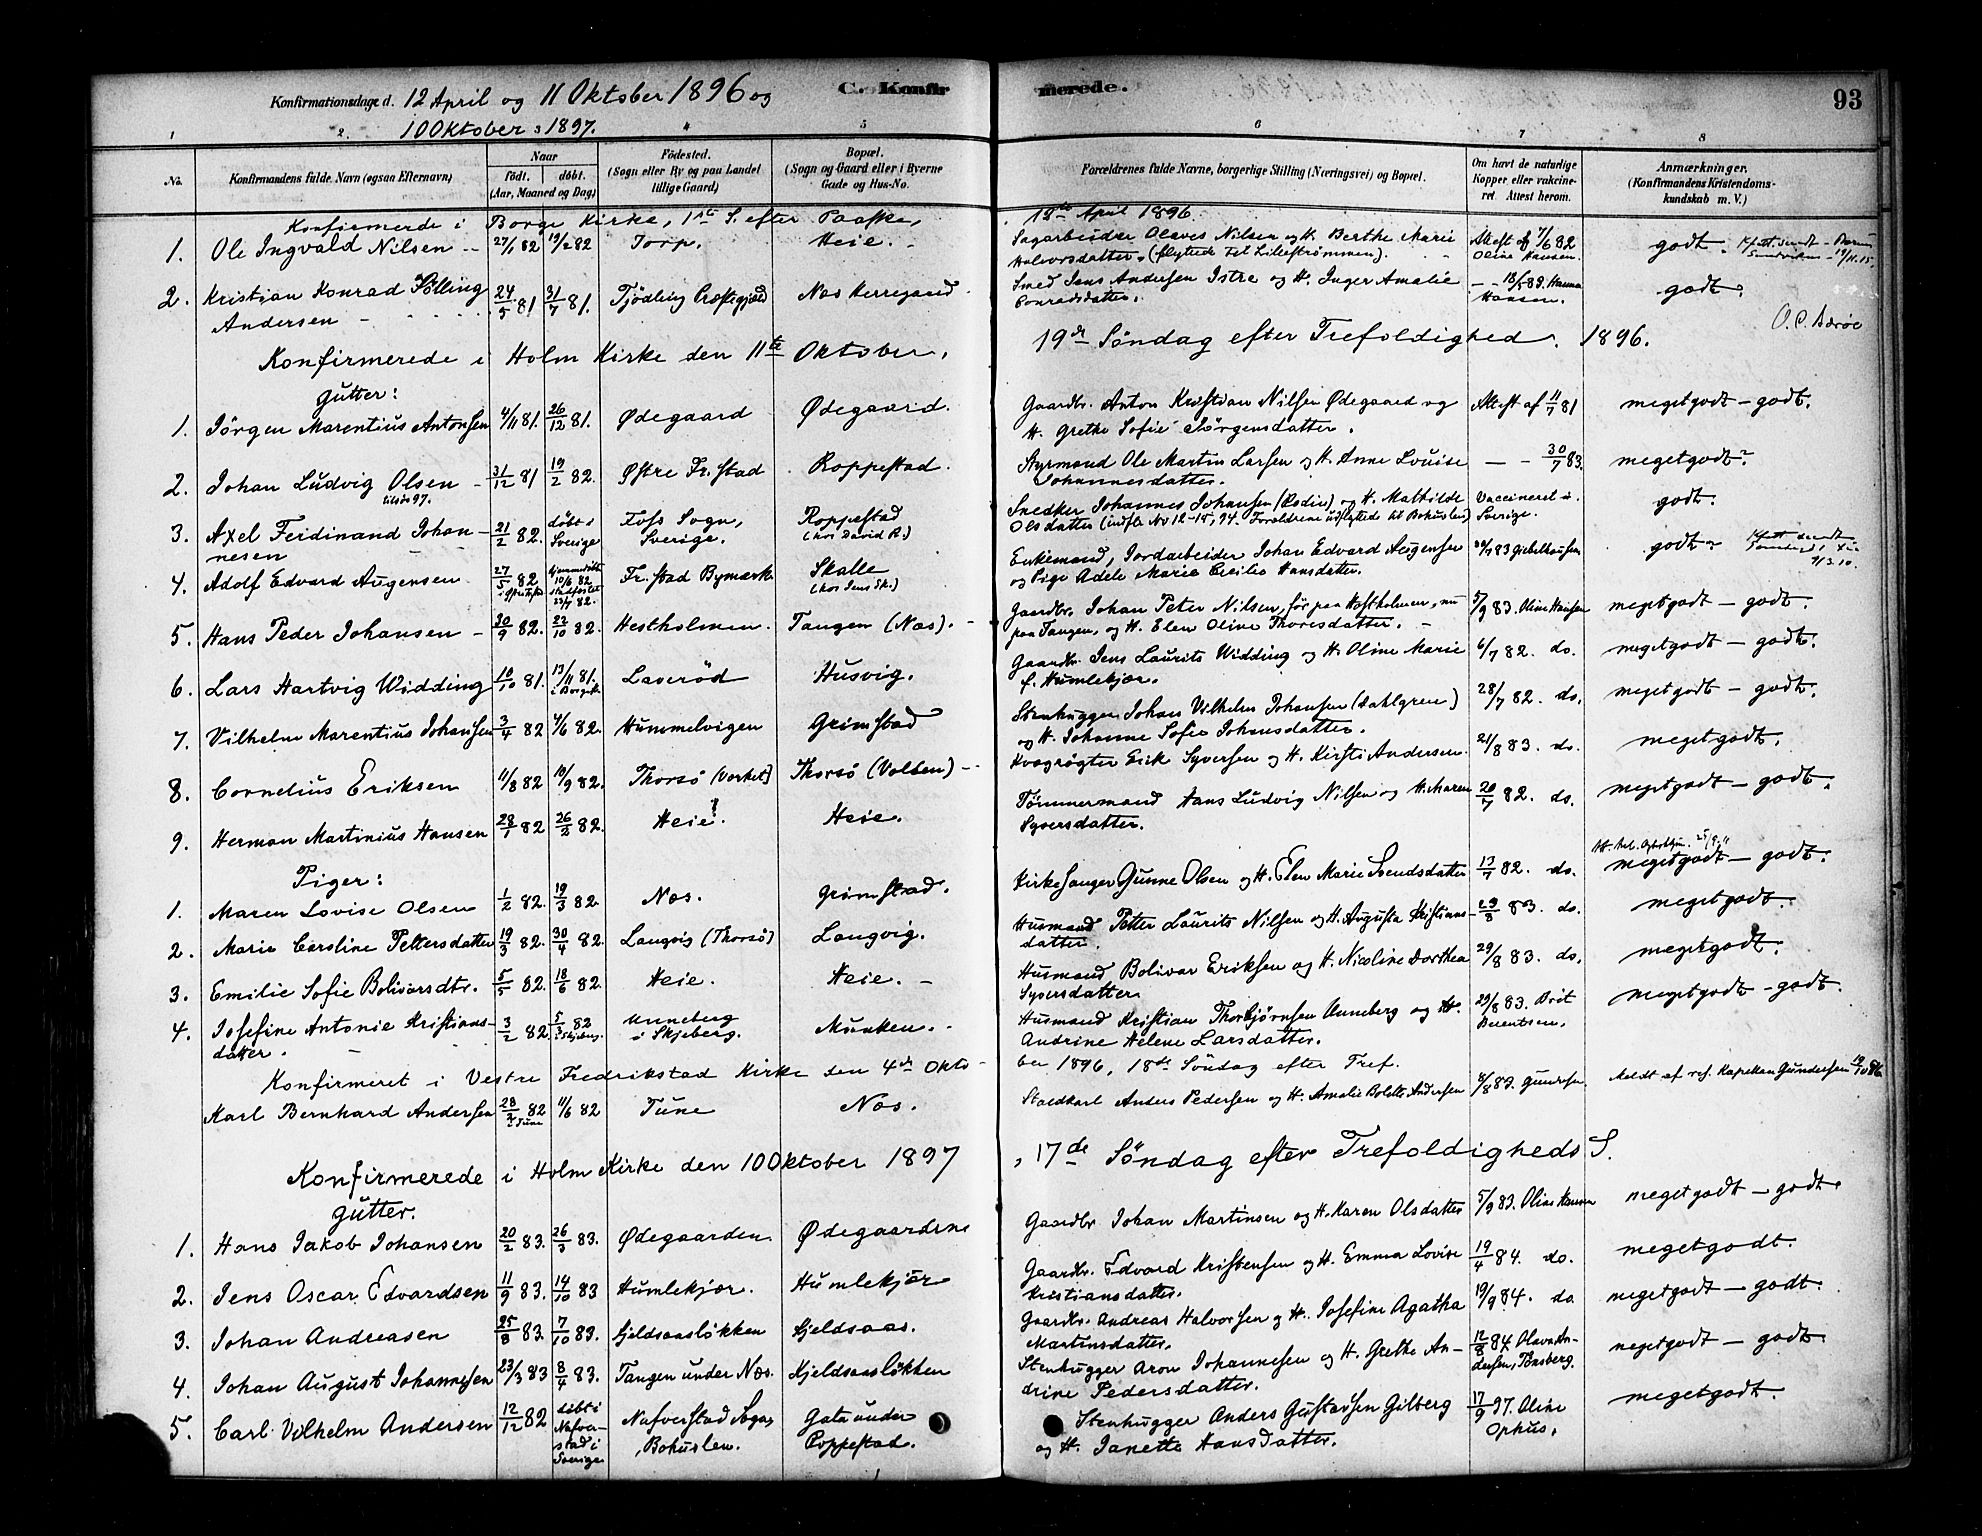 Konfirmationsdage d. 12 April og 11 Oktober 1896 og
C. Konfirmerede.
93
10 Oktober 1897.
1 2. 4 5 6 7 8
No.
Konfirmandens fulde Navn (ogsaa Efternavn)
Naar
født. døbt.
(Aar, Maaned og Dag)
Fødested.
(Sogn eller By og paa Landet
tillige Gaard)
Bopæl.
(Sogn og Gaard eller i Byerne
Gade og Hus-No.
Forældrenes fulde Navne, borgerlige Stilling (Næringsvei) og Bopæl.
Om havt de naturlige
Kopper eller vakcine-
ret. Attest herom.
Anmærkninger.
(Konfirmandens Kristendoms-
kundskab m. V.)
Konfirmerede i Borge Kirke, 1ste S. efter Paaske, 12te April 1896
1. Ole Ingvald Nilsen 27/1 82 19/2 82 Torp. Heie. Sagarbeider Olaves Nilsen og H. Berthe Marie Attest af 7/6 82 godt
Halvorsdatter. (flyttede til Lillestrømmen). Oline Hansen.
2. Kristian Konrad Sölling 24/5 81 31/7 81. Tjødling Præstegjæld Næs Herregaard Smed Jens Andersen Istre og H. Inger Amalie 13/8 83. Hanna godt.
Andersen Conradsdatter. Hansen.
O. C. Bærøe
Konfirmerede i Holm Kirke den 11te Oktober, 19de Söndag efter Trefoldighed. 1896.
Gutter:
1. Jörgen Marentius Antonsen 4/11 81. 26/12 81. Ødegaard Ødegaard. Gaardbr. Anton Kristian Nilsen Ødegaard og Attest af 11/7 81 megetgodt - godt.
H. Grethe Sofie Jörgensdatter.
2. Johan Ludvig Olsen 31/12 81 19/2 82. Østre Fr.stad Roppestad. Styrmand Ole Martin Larsen og H. Anne Lovise — - 30/7 83. megetgodt
Johannesdatter.
3. Axel Ferdinand Johan- 21/2 82. döbt i Foss Sogn, Roppestad Snedker Johannes Johansen (Rödin) og H. Mathilde Vaccineret i godt.
nesen Sverige Sverige. (hos David R.) Olsdatter (indfl. No 12-15, 94. Forældrene udflyttede til Bohuslen) Sverige.
4. Adolf Edvard Augensen 27/5 82 hjemmedöbt 10/6 82 23/7 82. Fr.stad Bymark Skalle Enkemand, Jordarbeider Johan Edvard Augensen 83 Giebelhausen godt
(hos Jens Sk.) og Pige Adele Marie Cecilie Hansdatter.
5. Hans Peder Johansen 30/9 82. 22/10 82. Hestholmen. Tangen (Næs). Gaardbr. Johan Peter Nilsen, før paa Hestholmen, nu 5/9 83 Oline Hansen megetgodt - godt.
paa Tangen, og H. Elen Oline Thorisdatter.
6. Lars Hartvig Widding 10/10 81. 13/11 81. Laveröd Husvig. Gaardbr. Jens Laurits Widding og H. Oline Marie 6/7 82. do. megetgodt - godt.
f. Humlekjær.
7. Vilhelm Marentius Johansen 3/4 82 4/6 82. Hummelvigen Grimstad Stenhugger Johan Vilhelm Johansen (Dahlgren) 28/7 82. do. megetgodt - godt.
og H. Johanne Sofie Johansdatter.
8. Cornelius Eriksen 11/8 82 10/9 82. Thorsö (Værket) Thorsö (Volben) Kvægrögter Erik Syversen og H. Kirsti Andersen. 21/8 83. do. megetgodt.
9. Herman Martinius Hansen 28/1 82 26/2 82. Heie. Heie. Tömmermand Hans Ludvig Nilsen og H. Maren 20/7 82. do. megetgodt - godt.
Syversdatter.
Piger:
1. Maren Lovise Olsen 1/2 82. 19/3 82 Næs. Grimstad. Kirkesanger Gunne Olsen og H. Elen Marie Svendsdatter 13/7 82. do. megetgodt - godt.
2. Marie Caroline Pettersdatter 19/3 82. 30/4 82. Langvig (Thorsö) Langvig. Husmand Petter Laurits Nilsen og H. Augusta Kristians- 29/8 83. do. megetgodt.
datter.
3. Emilie Sofie Bolivarsdtr. 5/5 82. 18/6 82 Heie. Heie. Husmand Bolivar Eriksen og H. Nicoline Dorthea 29/8 83. do. megetgodt.
Syversdatter
4. Josefine Antonie Kristians- 3/2 82. 5/3 82 i Skjeberg. Unneberg Munken. Husmand Kristian Thorbjørnsen Unneberg og H. 29/8 83. Bröt megetgodt - godt.
datter. i Skjeberg. Andrine Helene Larsdatter. Berentsen.
Konfirmeret i Vestre Fredrikstad Kirke den 4de Okto- ber 1896, 18de Söndag efter Tref.
Karl Bernhard Andersen 28/2 82 i Tune 11/6 82 Tune Næs. Staldkarl Anders Pedersen og H. Amalie Bolette Andersen 83. Meldt af res. Kapellan Gundersen 19/10 96
Konfirmerede i Holm Kirke den 10 Oktober 1897, 17de Söndag efter Trefoldigheds S.
Gutter.
1. Hans Jakob Johansen 20/2 83. 26/3 83. Ødegaarden Ødegaardene Gaardbr. Johan Martinsen og H. Karen Olsdatter 5/9 83. Oline Hansen megetgodt - godt.
2. Jens Oscar Edvardsen 11/9 83. 14/10 83 Humlekjær. Humlekjær Gaardbr. Edvard Kristensen og H. Emma Lovise 19/4 84. do. megetgodt.
Kristiansdatter.
3. Johan Andreasen 25/8 83. 7/10 83. Kjeldsaaslökken Kjeldsaas. Gaardbr. Andreas Halvorsen og H. Josefine Agatha 19/9 84. do megetgodt - godt.
Martinsdatter.
4. Johan August Johannesen 23/3 83 8/4 83. Tangen under Næs. Kjeldsaaslökken Stenhugger Aron Johannesen og H. Grethe An- 12/8 84. Olava An- megetgodt - godt.
drine Pedersdatter. dersen, Tönsberg.
5. Carl Vilhelm Andersen 12/12 82 döbt i Nafver- Nafverstad Sogn, Gata under Stenhugger Anders Gustavsen Gilberg 17/9 97. Oline megetgodt.
stad i Sverige Bohuslen. Roppestad. og H. Janette Hansdatter. Ophus.